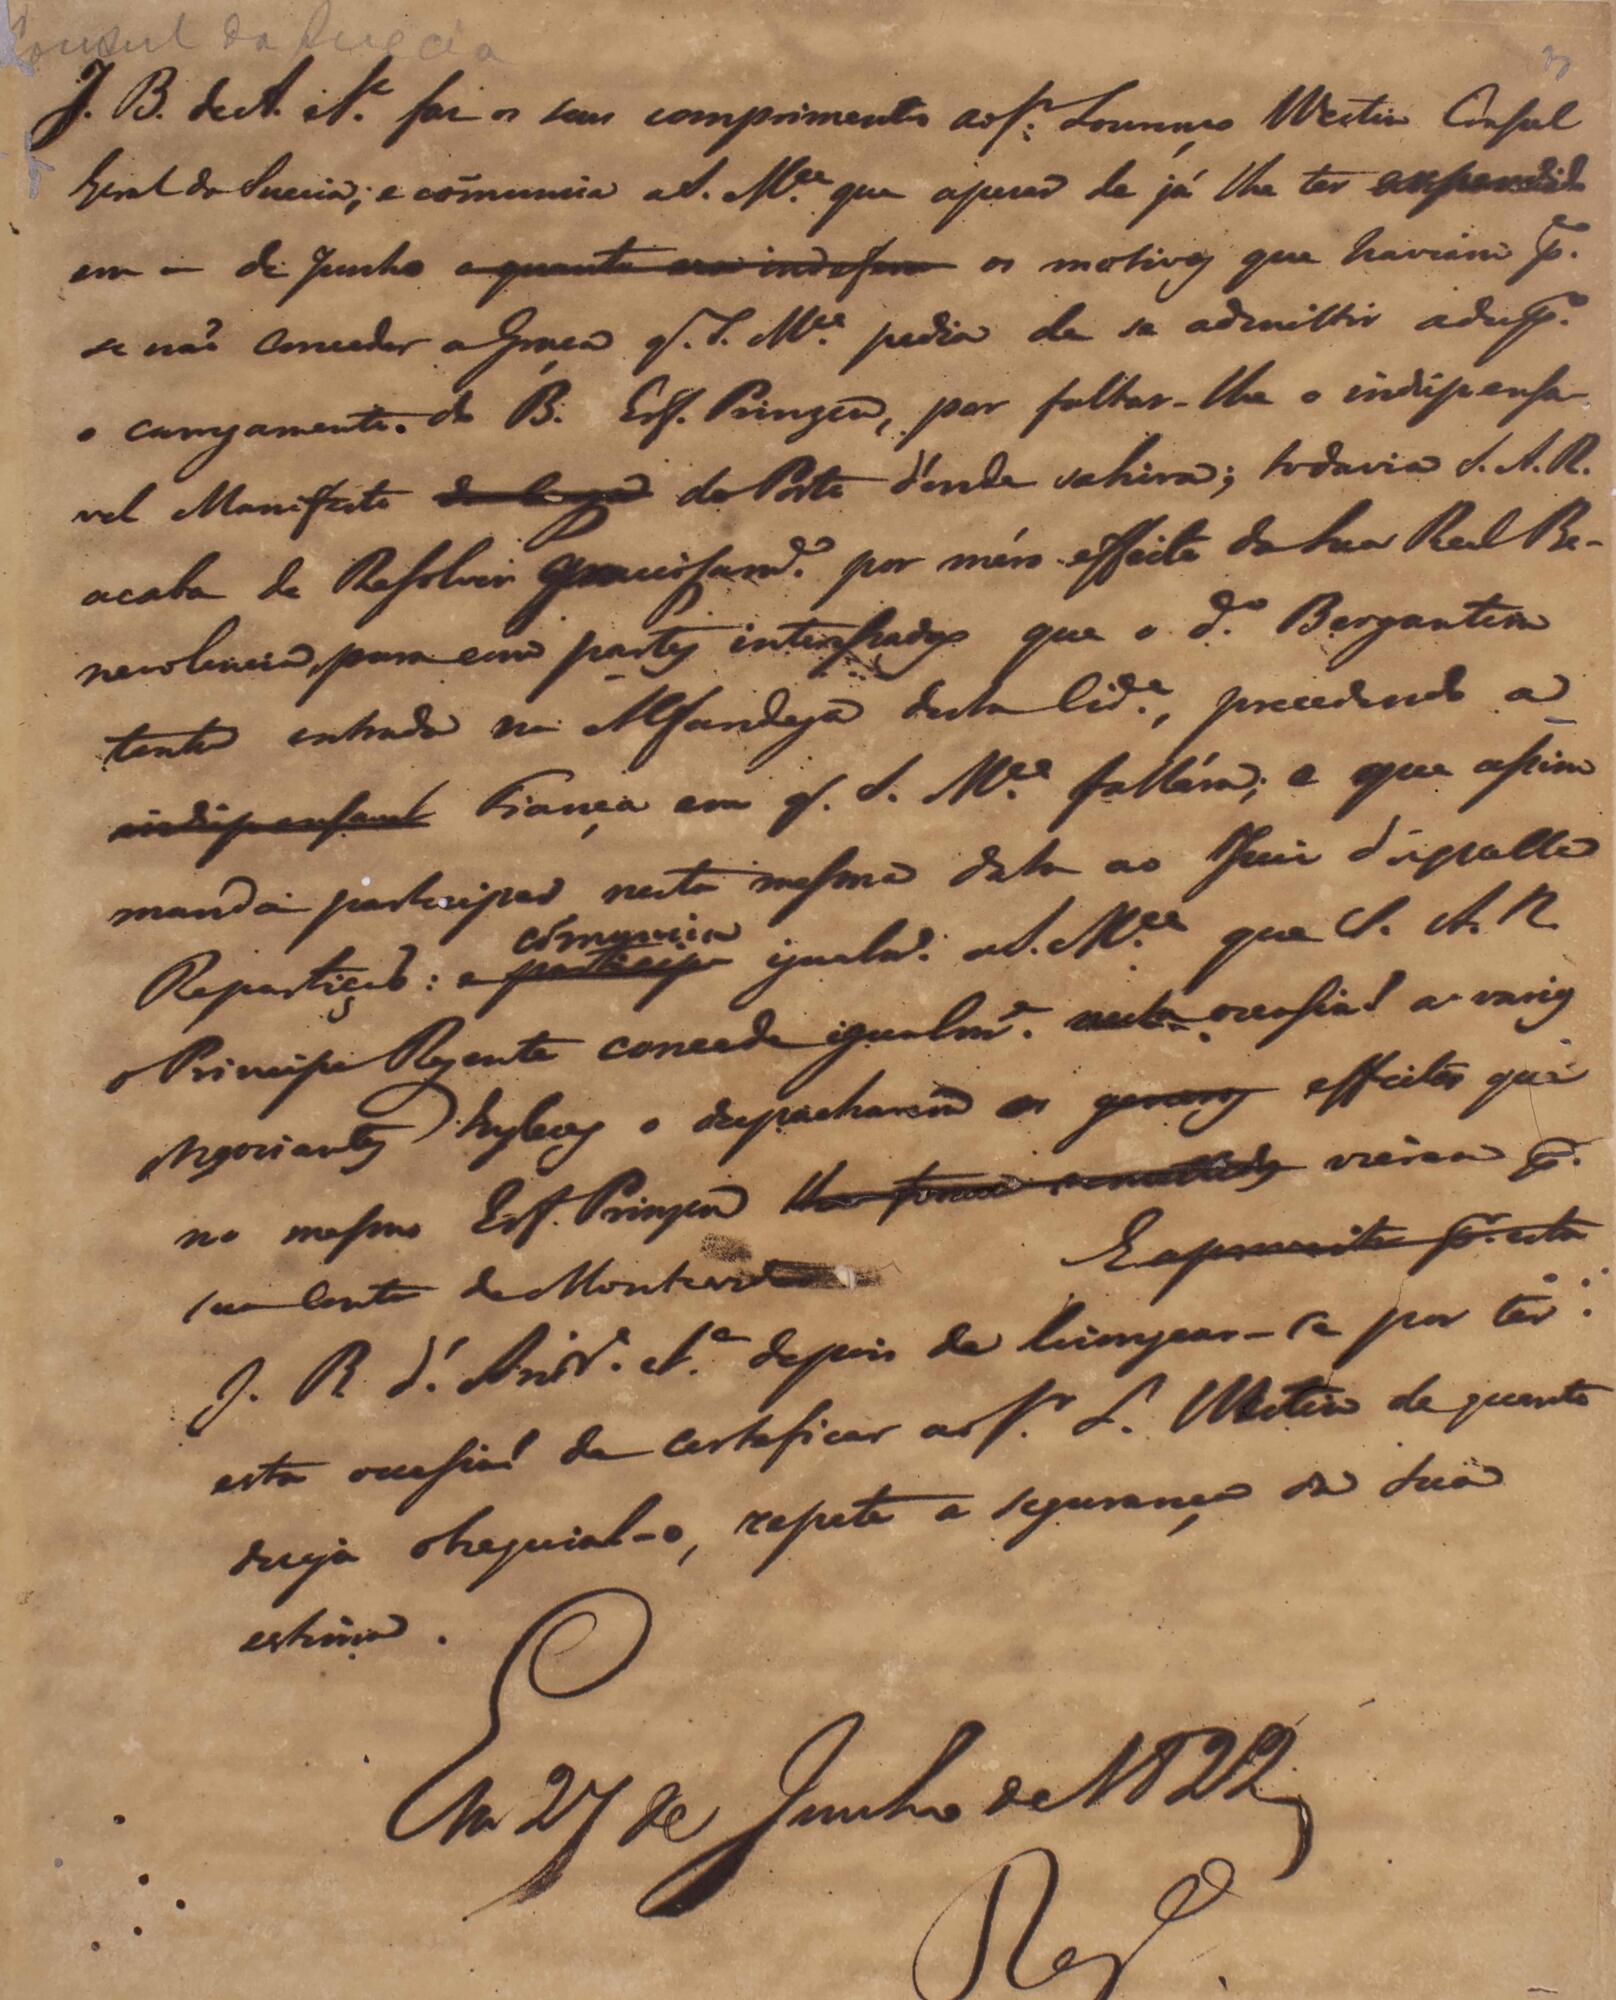 Consul da Suecia
J. B. de A. e S.ª faz os seus comprimentos ao Sr. Lourenço Westin Consul
Geral da Suecia; e cõmunica a S. M.ce que apezar de já lhe ter expendido
em — de Junho e quanto era os motivos que haviam p.ª
se não conceder a Graça q. S. M.ce pedia de se admittir a desp.º
o carregamento do B. Esf. Prinzen, por faltar-lhe o indispensa-
vel Manifesto do lugar do Porto d'onde sahira; todavia S. A. R.
acaba de Resolver Graciosam.e por méro effeito da Sua Real Be-
nevolencia, para com partes interessadas que o d.º Bergantim
tenha entrada na Alfandega desta Cid.e, precedendo a
indispensavel Fiança em q. S. M.ce fallára; e que assim
manda participar nesta mesma data ao Juiz d'aquella
Repartição: e participa cõmunica igualm.e a S. M.ce que S. A. R.
o Principe Regente concede igualm.e nesta occasião a varios
Negociantes Inglezes o despacharem os generos effeitos que
no mesmo Esf. Prinzen lhe foram remettidos vieram p.r
sua Conta de Montevideo E aproveita p.r esta
J. B. d'Andr.ª e S.ª depois de lisongear-se por ter
esta occasião de certificar ao Sr. L. Westin de quanto
deseja obsequial-o, repete a segurança da Sua
estima.
Em 27 de Junho de 1822
Reg.do